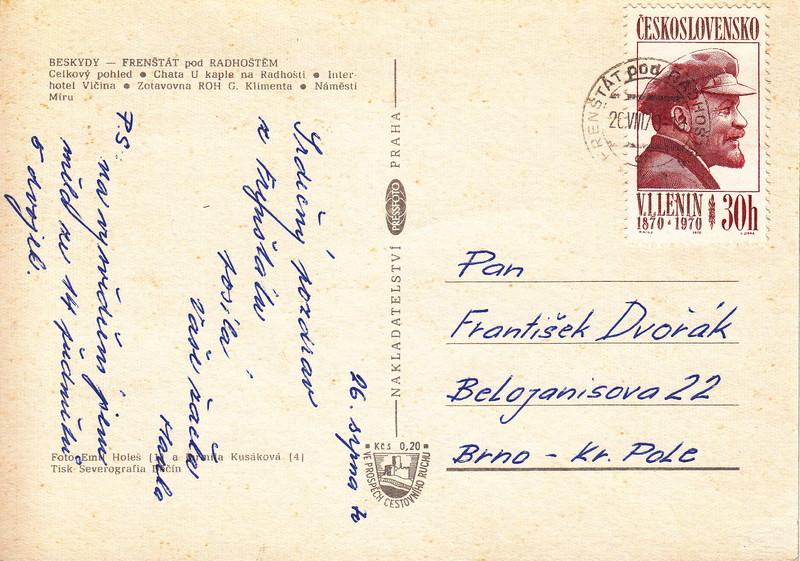 BESKYDY — FRENŠTÁT pod RADHOŠTĚM
Celkový pohled ● Chata U kaple na Radhošti ● Inter-
hotel Vlčina ● Zotavovna ROH G. Klimenta ● Náměstí
Míru
26. srpna
Srdečný pozdrav
z
posílá
Vaše žačka
P.S. na vysvědčení jsem
měla ze 14 předmětů
5 dvojek.
Foto Emil Holeš (1) a Kusáková (4)
Tisk Severografia Děčín
NAKLADATELSTVÍ PRESSFOTO PRAHA
Kčs 0,20
VE PROSPĚCH CESTOVNÍHO RUCHU
ČESKOSLOVENSKO
V.I.LENIN 30h
1870 · 1970
FRENŠTÁT pod RADHOŠ
26.VIII.70
Pan
František Dvořák
Belojanisova 22
Brno - Kr. Pole